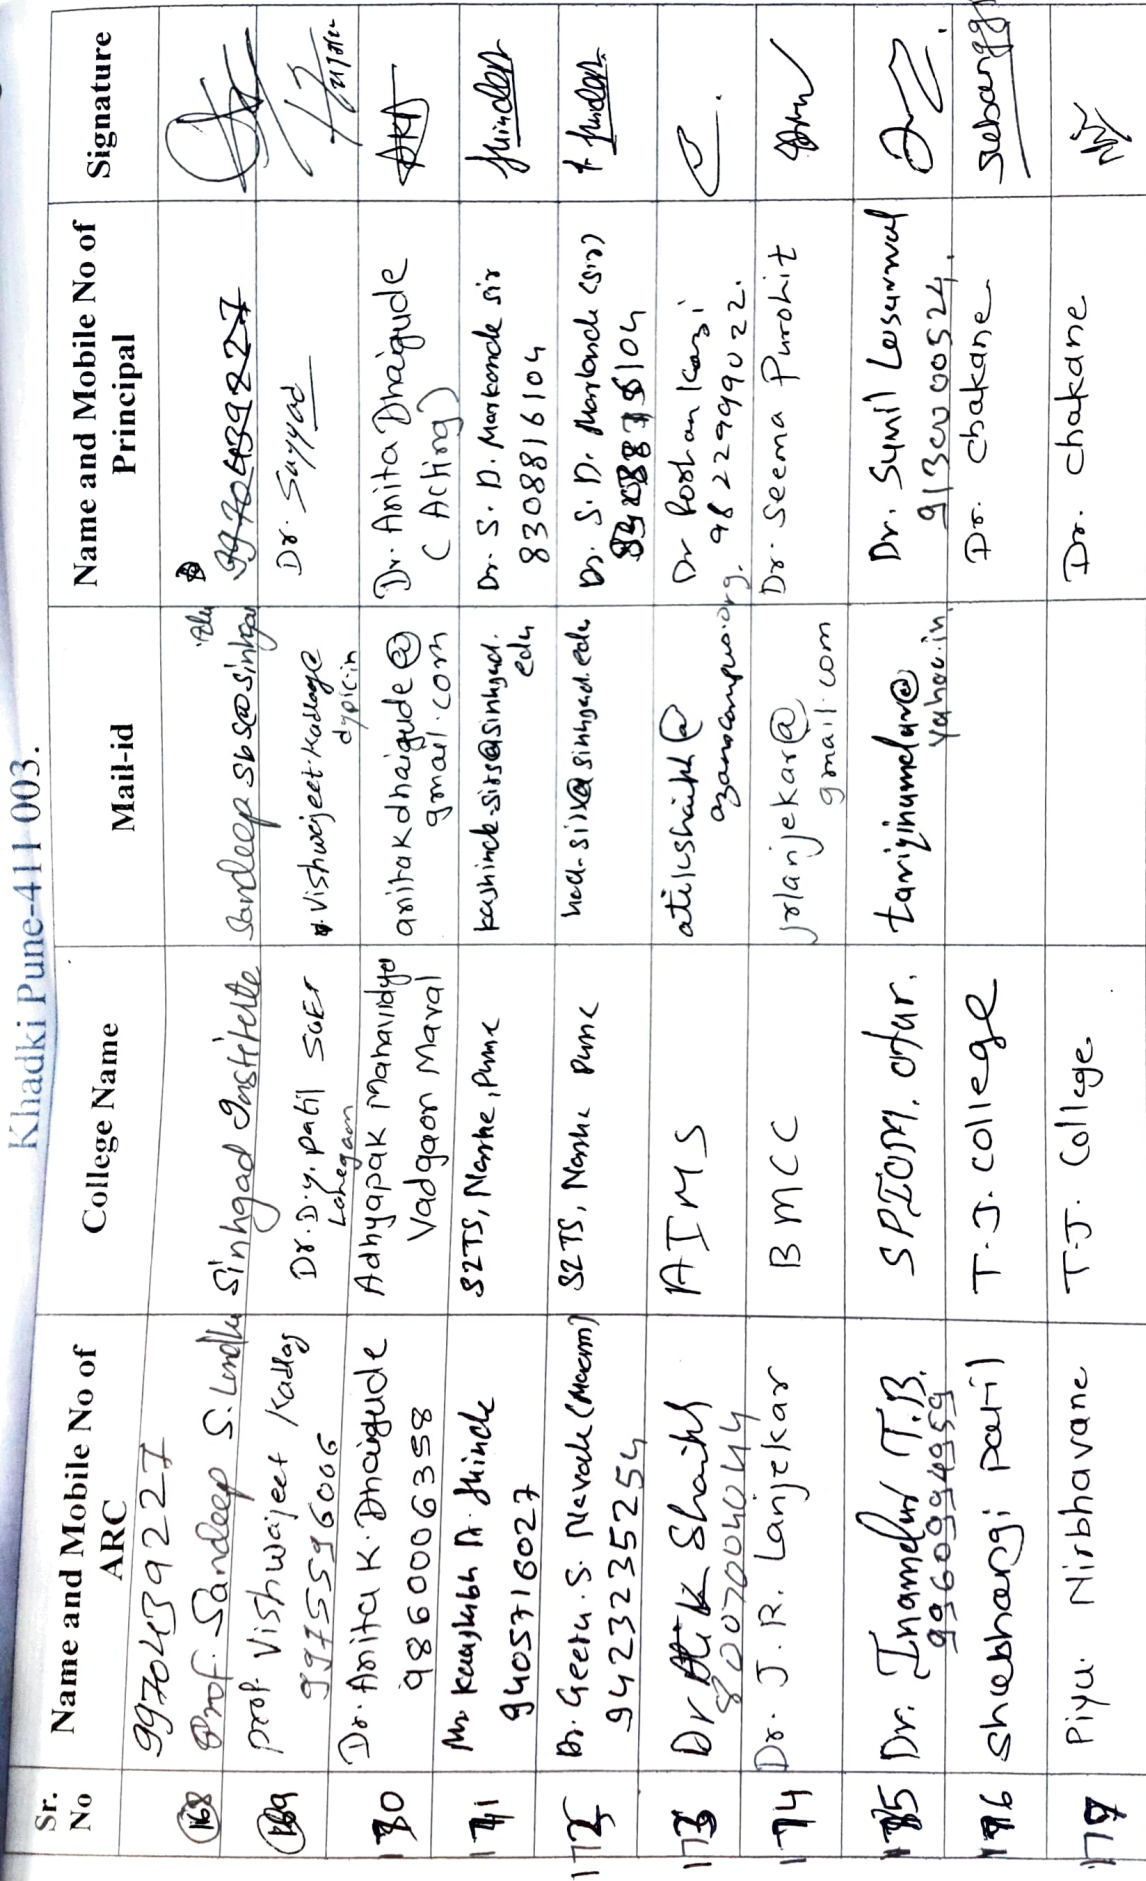 Khadki Pune-411 003.
Sr. No
Name and Mobile No of ARC
College Name
Mail-id
Name and Mobile No of Principal
Signature
168
9970439227
Prof. Sandeep S.
Sinhgad Institute
9970439227
169
Prof. Vishwajeet Kadlag
9975596006
Dr. D.Y. Patil SOET
Lohegaon
Vishwajeet.Kadlag@
dypic.in
Dr. Sayyad
170
Dr. Anita K. Dhaigude
9860006358
Adhyapak Mahavidya
Vadgaon Maval
anitakdhaigude@
gmail.com
Dr. Anita Dhaigude
(Acting)
171
Mr. Kaustubh A. Shinde
9405716027
S2TS, Narhe, Pune
kashinde-sits@sinhgad.
edu
Dr. S. D. Markande sir
8308816104
172
Dr. Geeta. S. Navale (Maam)
9423235254
S2TS, Narhe Pune
@sinhgad.edu
Dr. S. D. Markande (sir)
173
Dr Atik Shaikh
8007004044
AIMS
atikshaikh@
azamcampus.org.
Dr Roshan Kazi
9822999022.
174
Dr. J. R. Lanjekar
BMCC
jrlanjekar@
gmail.com
Dr. Seema Purohit
175
Dr. Inamdar T.B.
9960994959
SPIOM, Otur.
@
yahoo.in
Dr. Sunil
9130000524.
176
Shubhangi Patil
T.J. College
Dr. Chakane
177
Piyu Nirbhavane
T.J. College
Dr. Chakane